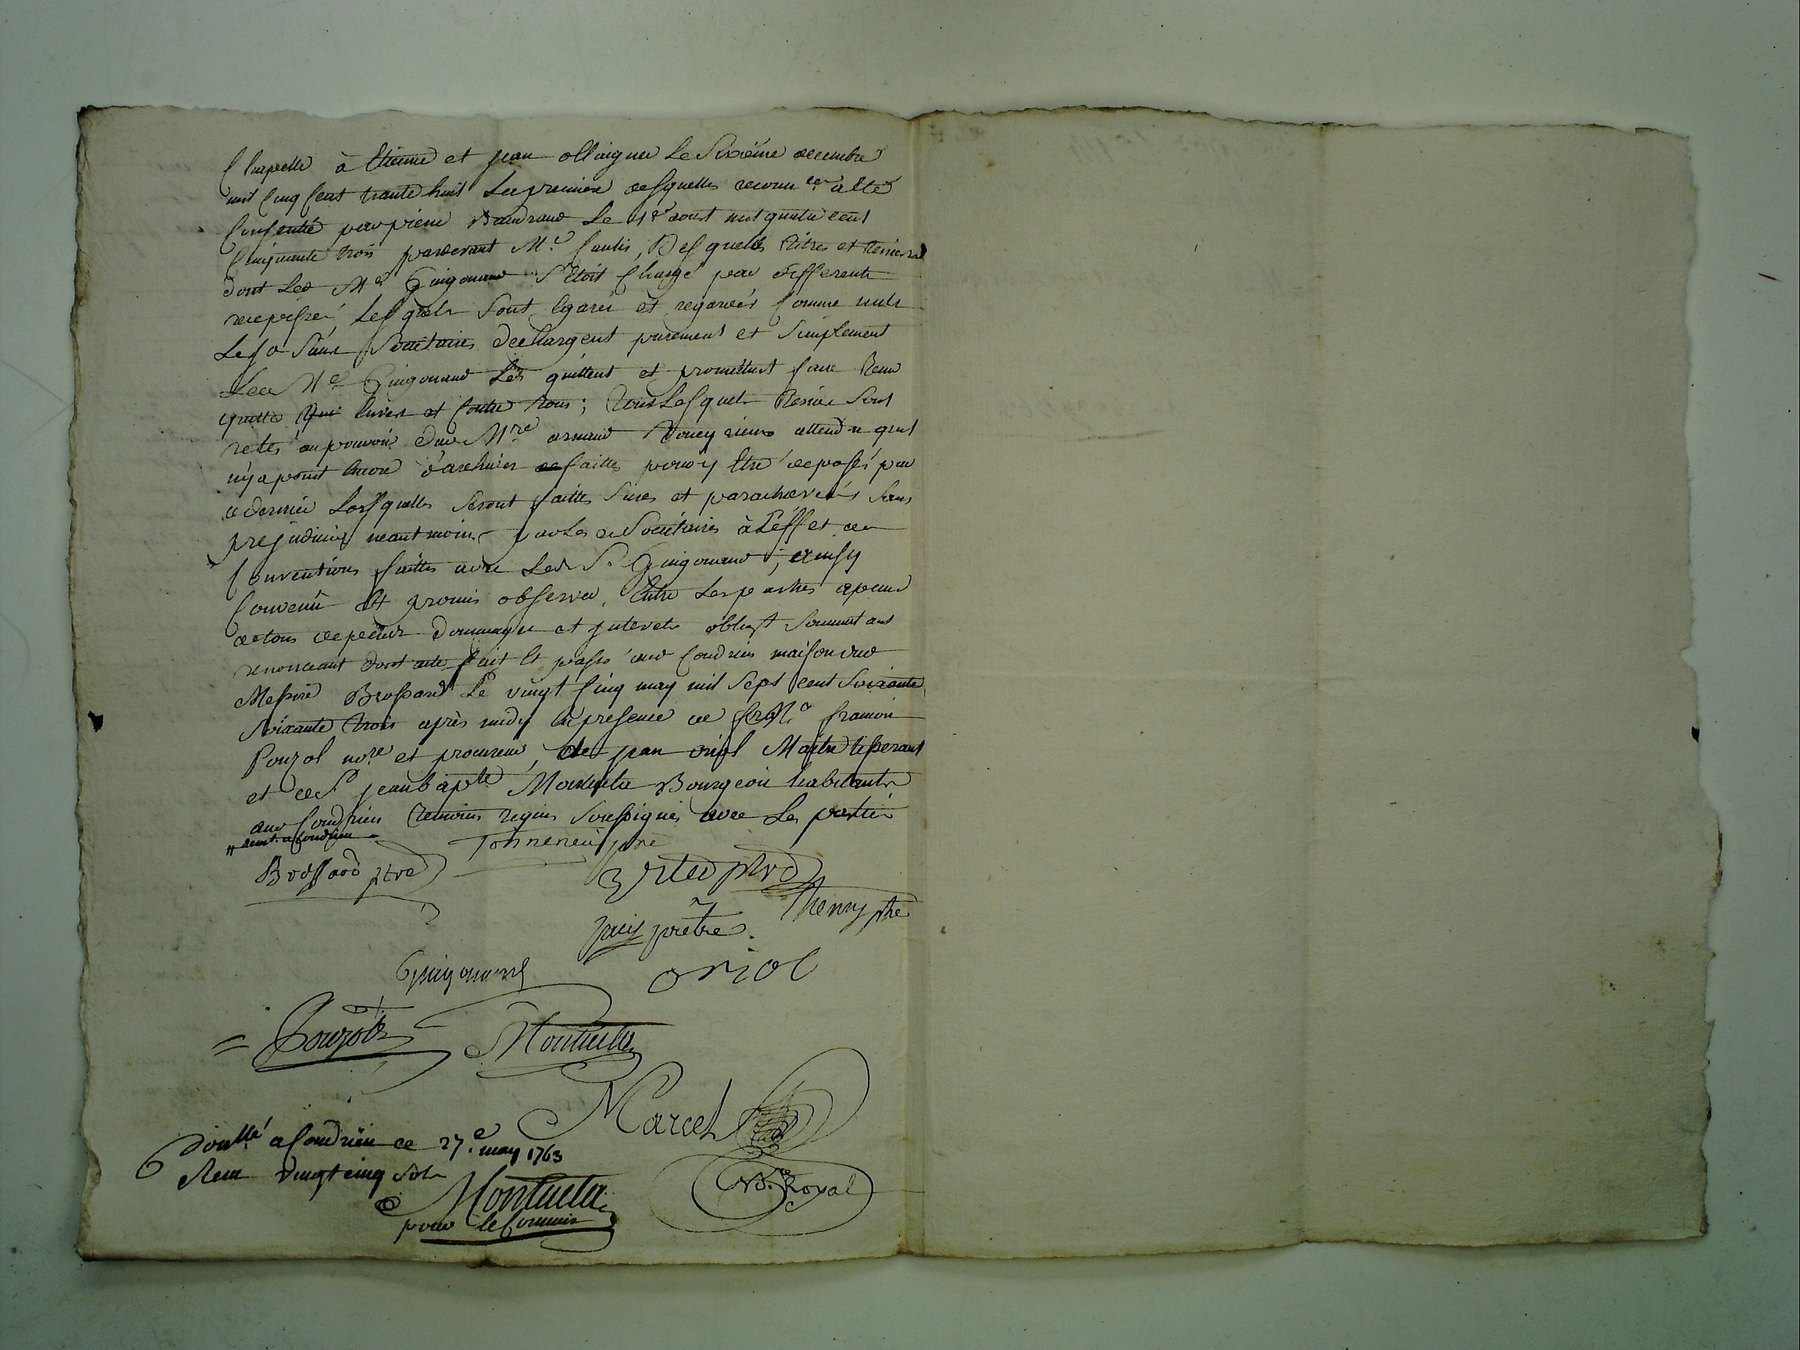 Chapelle à Etienne et jean ollaignier Le Sixième decembre
mil Cinq Cent trante huit La premiere desquelles reconn.ces a été
Consentie par pierre Baudrand Le 18e aoust mil quatre cent
Cinquante trois pardevant Me , Desquels titres et terriers
dont Led Me Guigonand S'etoit Chargé par differents
recepissés, Lesquels Sont egarés et regardés Comme nuls
Lesd Srs Societaires dechargent purement et Simplement
Led Me Guigonand Les quittent et promettent faire tenir
quitte envers et Contre tous ; tous Lesquels terriers Sont
restés au pouvoir dud Mre arnaud attendu quil
ny a point encore d'archives faittes pour y Etre deposés par
ce dernier Lorsquelles Seront faittes et parachevées Sans
prejudicier neantmoins par Les d Societaires à L'effet des
Conventions faittes avec Led Sr Guigonand ; ainsy
Convenu et promis observer Entre Les parties a peine
de tous depends dommages et interets obligt Soumettant
renonceant dont acte fait et passé aud Condrieu maison dud
Messire Brossard Le vingt Cinq may mil Sept Cent Soixante
Soixante trois après midy En presence de Me framon
Pouzol nore et procureur, de jean oriol Maitre tisserant
et de Sr jean bapte Montuclla Bourgeois habitants
aud Condrieu temoins requis Soussignés avec Les parties
Brossard ptre
Henry ptre
prêtre
Guigonand
oriol
Pouzol
Montuclla
Marcel
No. Royal
Conllé a Condrieu ce 27.e may 1763
Reçu vingt cinq sols
Montuclla
pour le Commis